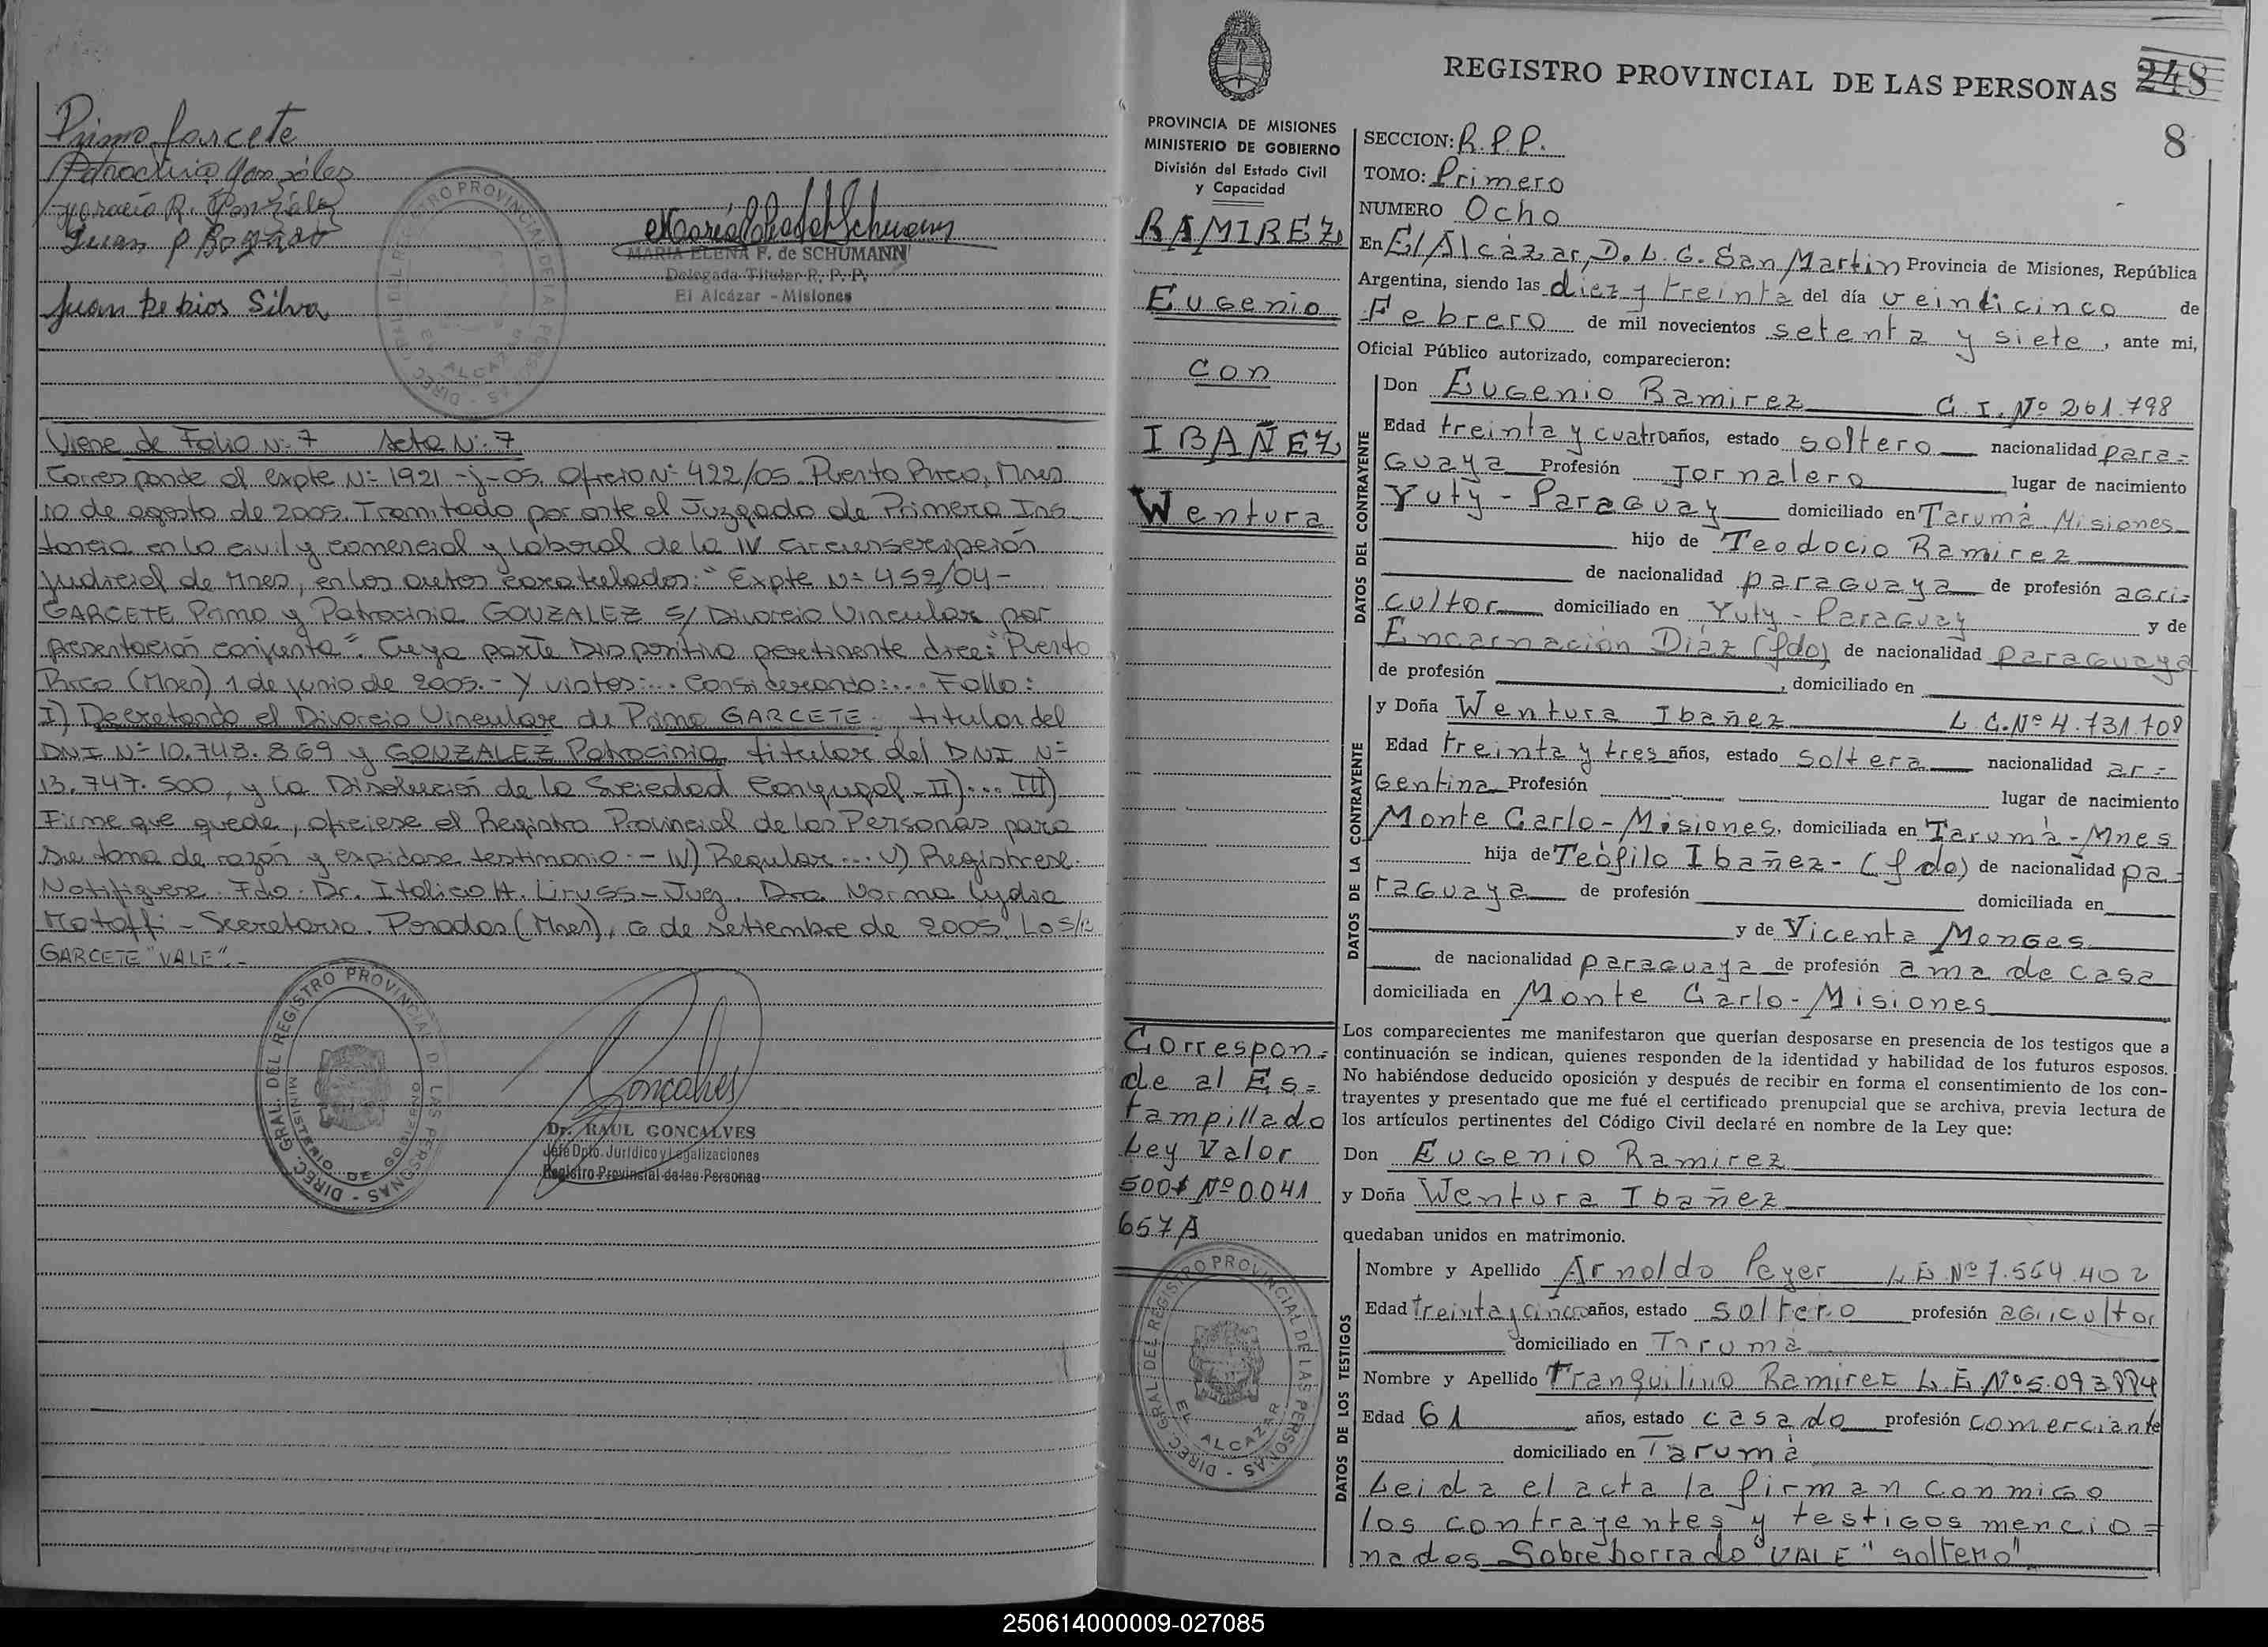 Primo Garcete
Patrocinia González
Horacio R. González
Juan P Rogado
Juan de Dios Silva
MARIA ELENA F. de SCHUMANN
Delegada Titular R. P. P.
El Alcázar - Misiones
DIREC. GRAL. DEL REGISTRO PROVINCIAL DE LAS PERSONAS
EL ALCAZAR
Viene de Folio Nº 7 Acta Nº 7
Corresponde al expte Nº 1921 -J-05. Oficio Nº 422/05. Puerto Rico, Mnes
10 de agosto de 2005. Tramitado por ante el Juzgado de Primera Ins
tancia en lo civil y comercial y laboral de la IV circunscripción
judicial de Mnes, en los autos caratulados: "Expte Nº 452/04-
GARCETE Primo y Patrocinia GONZALEZ S/ Divorcio Vincular por
presentación conjunta". Cuya parte Dispositiva pertinente dice: "Puerto
Rico (Mnes) 1 de junio de 2005.- Y vistos:... Considerando:... Fallo:
I) Decretando el Divorcio Vincular de Primo GARCETE, titular del
DNI Nº 10.743.869 y GONZALEZ Patrocinia, titular del DNI Nº
13.747.500, y la Disolución de la Sociedad Conyugal - II)... III)
Firme que quede, oficiese al Registro Provincial de las Personas para
su toma de razón y expidase testimonio.- IV) Regular... V) Registrese.
Notifiquese. Fdo: Dr. Italico A. Liruss - Juez. Dra. Norma Lydia
Motoffi - Secretaria. Posadas (Mnes), 6 de setiembre de 2005. Lo s/r
GARCETE "VALE".-
DIREC. GRAL. DEL REGISTRO PROVINCIAL DE LAS PERSONAS
MINISTERIO DE GOBIERNO
Goncalves
Dr. RAUL GONCALVES
Jefe Dpto. Jurídico y Legalizaciones
Registro Provincial de las Personas
REGISTRO PROVINCIAL DE LAS PERSONAS 248
8
PROVINCIA DE MISIONES
MINISTERIO DE GOBIERNO
División del Estado Civil
y Capacidad
RAMIREZ
Eugenio
con
IBAÑEZ
Wentura
Correspon=
de al Es=
tampillado
Ley Valor
500$ Nº 0041
657A
DIREC. GRAL. DEL REGISTRO PROVINCIAL DE LAS PERSONAS
EL ALCAZAR
SECCION: R.P.P.
TOMO: Primero
NUMERO Ocho
En El Alcázar, D. L. G. San Martin Provincia de Misiones, República
Argentina, siendo las diez y treinta del día veinticinco de
Febrero de mil novecientos setenta y siete, ante mi,
Oficial Público autorizado, comparecieron:
DATOS DEL CONTRAYENTE
Don Eugenio Ramirez C. I. Nº 261.798
Edad treinta y cuatro años, estado soltero nacionalidad para=
guaya Profesión Jornalero lugar de nacimiento
Yuty - Paraguay domiciliado en Tarumá Misiones
hijo de Teodocio Ramirez
de nacionalidad paraguaya de profesión agri=
cultor domiciliado en Yuty - Paraguay y de
Encarnación Díaz (fdo) de nacionalidad paraguaya
de profesión , domiciliado en
DATOS DE LA CONTRAYENTE
y Doña Wentura Ibañez L. C. Nº 4.731.708
Edad treinta y tres años, estado soltera nacionalidad ar=
gentina Profesión lugar de nacimiento
Monte Carlo - Misiones, domiciliada en Tarumá - Mnes
hija de Teófilo Ibañez - (fdo) de nacionalidad pa=
raguaya de profesión domiciliada en
y de Vicenta Monges
de nacionalidad paraguaya de profesión ama de casa
domiciliada en Monte Carlo - Misiones
Los comparecientes me manifestaron que querían desposarse en presencia de los testigos que a
continuación se indican, quienes responden de la identidad y habilidad de los futuros esposos.
No habiéndose deducido oposición y después de recibir en forma el consentimiento de los con-
trayentes y presentado que me fué el certificado prenupcial que se archiva, previa lectura de
los artículos pertinentes del Código Civil declaré en nombre de la Ley que:
Don Eugenio Ramirez
y Doña Wentura Ibañez
quedaban unidos en matrimonio.
DATOS DE LOS TESTIGOS
Nombre y Apellido Arnoldo Peyer L E Nº 7.554.402
Edad treinta y cinco años, estado soltero profesión agricultor
domiciliado en Tarumá
Nombre y Apellido Tranquilino Ramirez L. E Nº 5.093.994
Edad 61 años, estado casado profesión comerciante
domiciliado en Tarumá
Leida el acta la firman conmigo
los contrayentes y testigos mencio=
nados Sobreborrado "VALE" soltero"
250614000009-027085